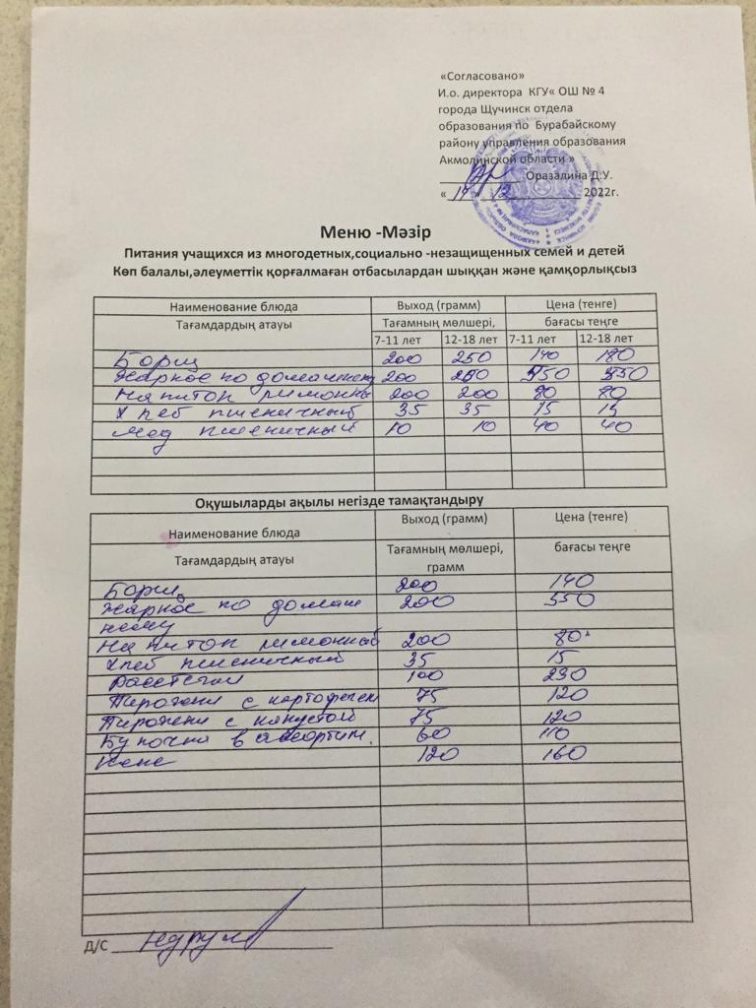 «Согласовано»
И.о. директора КГУ« ОШ № 4
города Щучинск отдела
образования по Бурабайскому
району управления образования
Акмолинской области »
Оразалина Д.У.
« 19 » 12 2022г.
Меню -Мәзір
Питания учащихся из многодетных,социально -незащищенных семей и детей
Көп балалы,әлеуметтік қорғалмаған отбасылардан шыққан және қамқорлықсыз
Наименование блюда Выход (грамм) Цена (тенге)
Тағамдардың атауы Тағамның мөлшері, бағасы теңге
7-11 лет 12-18 лет 7-11 лет 12-18 лет
Борщ 200 250 140 180
Жаркое по домашнему 200 200 550 550
Напиток лимонный 200 200 80 80
Хлеб пшеничный 35 35 15 15
Мед пшеничный 10 10 40 40
Оқушыларды ақылы негізде тамақтандыру
Наименование блюда Выход (грамм) Цена (тенге)
Тағамдардың атауы Тағамның мөлшері, грамм бағасы теңге
Борщ 200 140
Жаркое по домаш 200 550
нему
Напиток лимонный 200 80
Хлеб пшеничный 35 15
Расстегаи 100 230
Пирожени с картофелем 75 120
Пирожени с капустой 75 120
Булочки в ассортим. 60 110
Кекс 120 160
Д/С